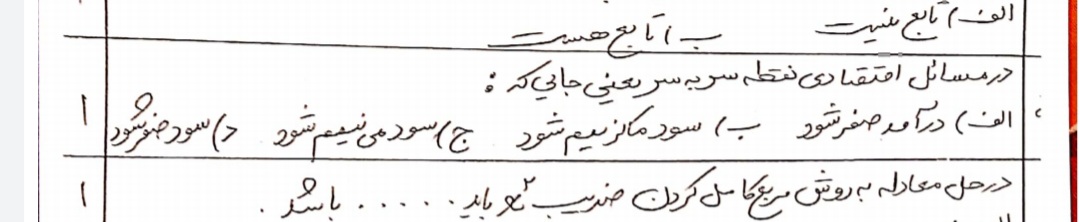 الف) تابع نیست ب) تابع هست
در مسائل اقتصادی نقطه سر به سر یعنی جایی که :
الف) درآمد صفر شود ب) سود ماکزیمم شود ج) سود می نیمم شود د) سود صفر شود ۱
در حل معادله به روش مربع کامل کردن ضریب x² باید ...... باشد . ۱